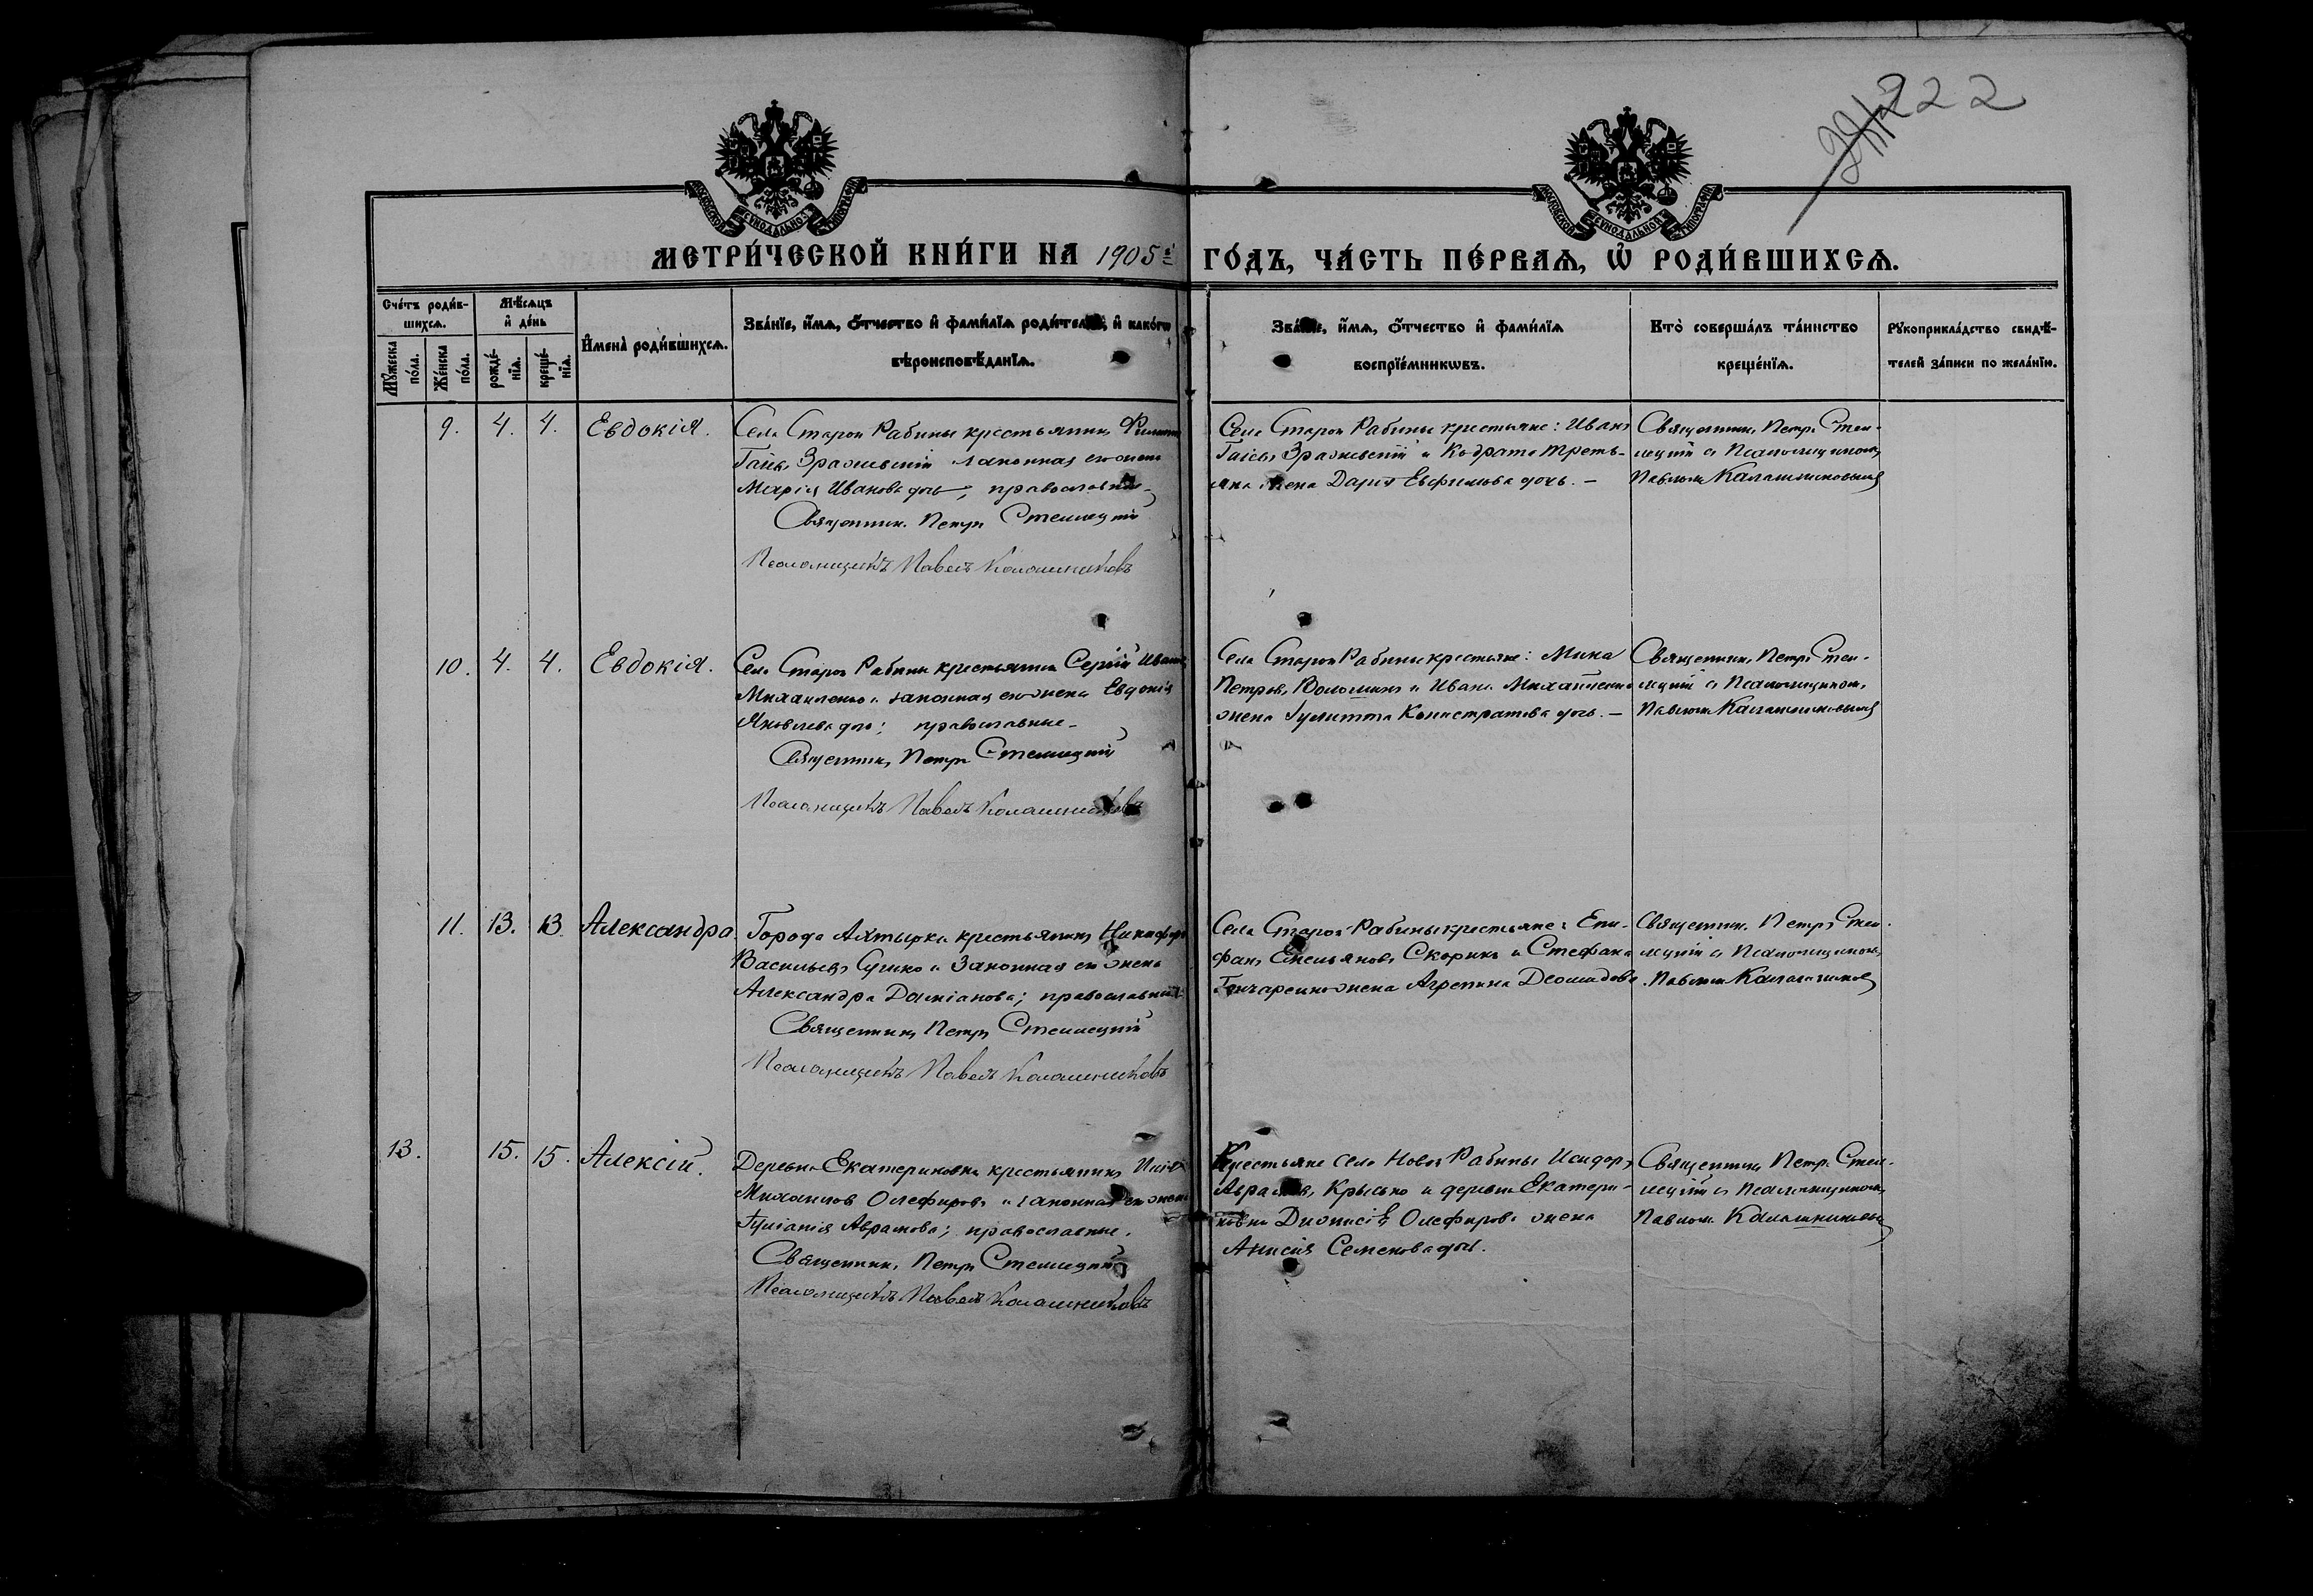 222
МОСКОВСКОЙ СѴНОДАЛЬНОЙ ТИПОГРАФІИ
МОСКОВСКОЙ СѴНОДАЛЬНОЙ ТИПОГРАФІИ
МЕТРИ́ЧЕСКОЙ КНИ́ГИ НА 1905й ГО́ДЪ, ЧА́СТЬ ПЕ́РВАѦ, Ѡ҆ РОДИ́ВШИХСѦ.
Сче́тъ роди́в-
шихсѧ.
Мѣ́сѧцъ
и҆ де́нь
Мꙋ́жеска по́ла.
Же́нска по́ла.
рожде́-нїѧ.
креще́-нїѧ.
И҆мена̀ роди́вшихсѧ.
Зва́нїе, и҆́мѧ, ѻ҆́тчество и҆ фами́лїѧ роди́телей, и҆ како́гѡ
вѣроисповѣ́данїѧ.
Зва́нїе, и҆́мѧ, ѻ҆́тчество и҆ фами́лїѧ
воспрїе́мникѡвъ.
Кто̀ соверша́лъ та́инство
креще́нїѧ.
Рꙋкоприкла́дство свидѣ́-
телей за́писи по жела́нїю.
9. 4. 4. Евдокія.
Села Старой Рабины крестьянинъ
законная его жена
Марія Иванова дочь; православные
Священникъ Петръ Стеллецкій
Псаломщикъ Павелъ Калашниковъ
Села Старой Рабины крестьяне: Иванъ
и Кодрата Треть-
яка жена Дарія Евфимова дочь. —
Священникъ Петръ Стел-
лецкій съ Псаломщикомъ
Павломъ Калашниковымъ
10. 4. 4. Евдокія.
Села Старой Рабины крестьянинъ Сергій Ивановъ
Михайленко и законная его жена Евдокія
Яковлева дочь; православные
Священникъ Петръ Стеллецкій
Псаломщикъ Павелъ Калашниковъ
Села Старой Рабины крестьяне: Мина
Петровъ Волошинъ и Ивана Михайленко
жена Іулитта Калистратова дочь. —
Священникъ Петръ Стел-
лецкій съ Псаломщикомъ
Павломъ Калашниковымъ
11. 13. 13. Александра.
Города Ахтырки крестьянинъ Никифоръ
Васильевъ и Законная его жена
Александра Даміанова; православные
Священникъ Петръ Стеллецкій
Псаломщикъ Павелъ Калашниковъ
Села Старой Рабины крестьяне: Епи-
фанъ Емельяновъ Скорикъ и Стефана
Гончаренко жена Агрепина Деомидова
Священникъ Петръ Стел-
лецкій съ Псаломщикомъ
Павломъ Калашников
13. 15. 15. Алексій.
Деревни Екатериновки крестьянинъ
Михаиловъ Олефировъ и законная его жена
Іуліанія Аврамова; православные.
Священникъ Петръ Стеллецкій
Псаломщикъ Павелъ Калашниковъ
Крестьяне села Новой Рабины Исидоръ
Аврамовъ Крысько и деревни Екатери-
новки Діонисія Олефирова жена
Анисія Семенова дочь.
Священникъ Петръ Стел-
лецкій съ Псаломщикомъ
Павломъ Калашниковымъ